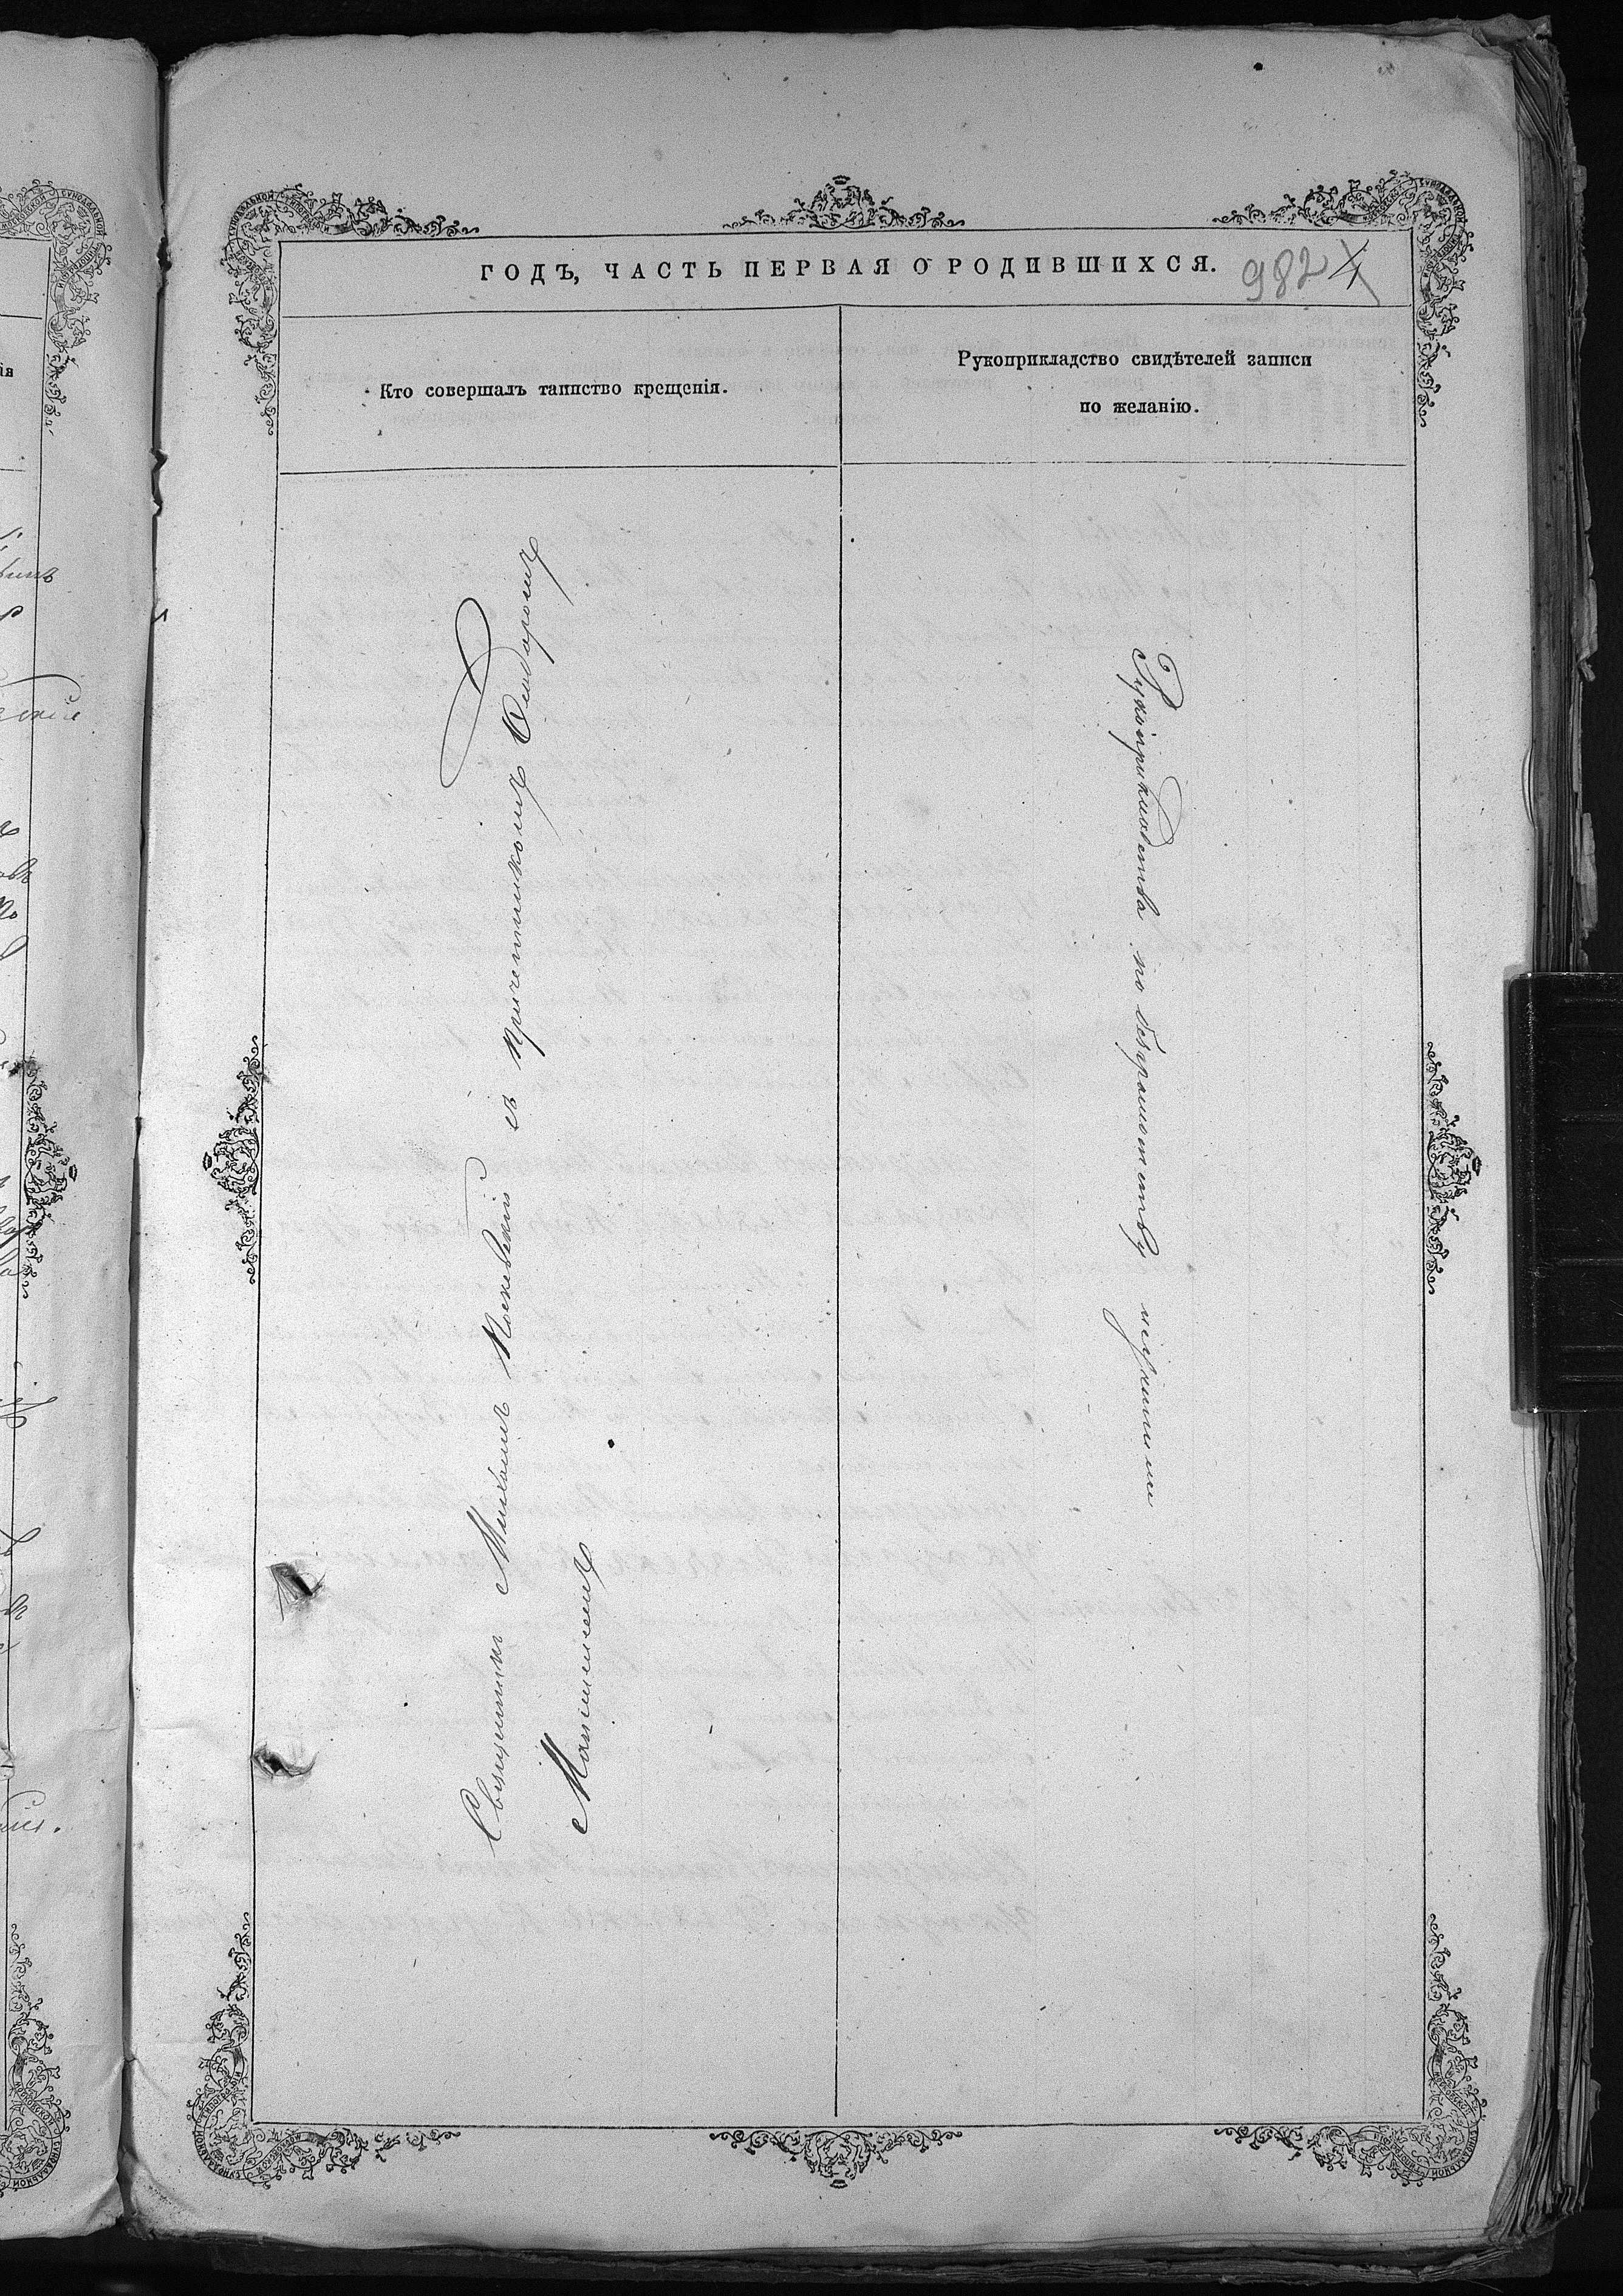 ГОДЪ, ЧАСТЬ ПЕРВАЯ О РОДИВШИХСЯ.
982 4
Кто совершалъ таинство крещенія.
Рукоприкладство свидѣтелей записи
по желанію.
Священникъ Михаилъ съ причетникомъ Ѳеодоромъ
Рукоприкладства по безграмотству неучинили